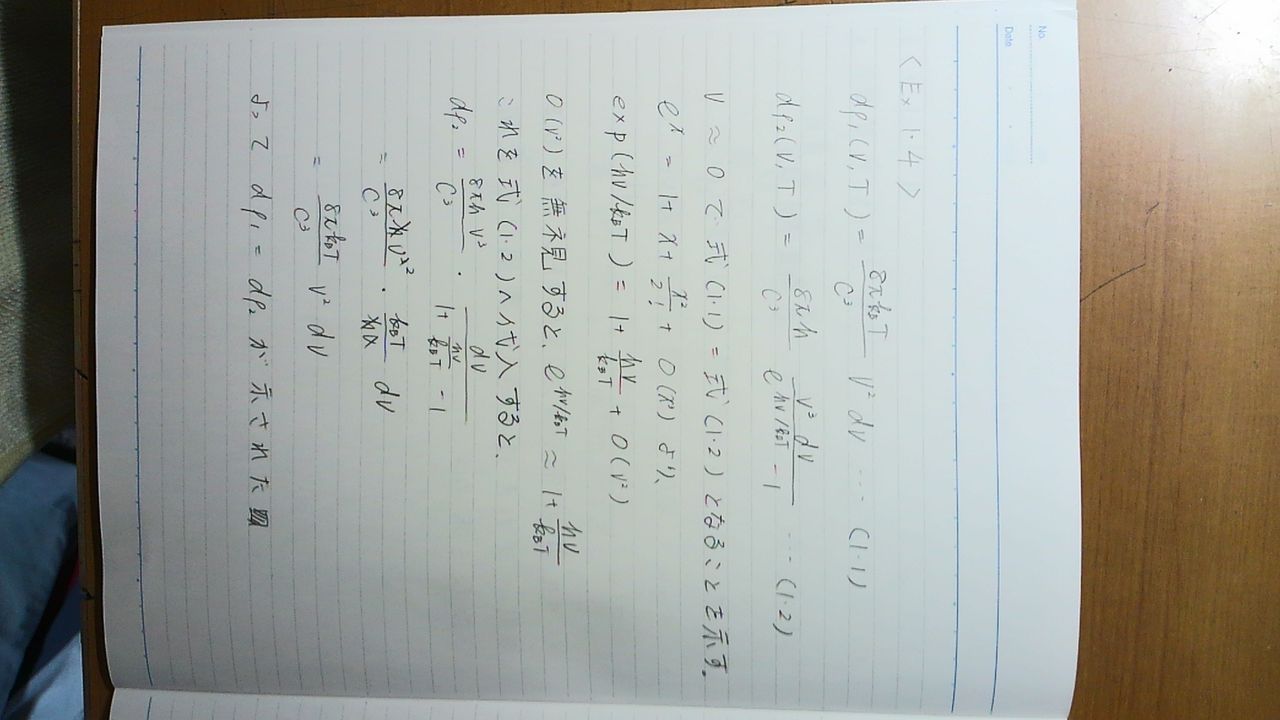 No.
Date
<Ex 1.4>
dρ₁(ν, T) = 8πk_BT/c³ ν² dν … (1.1)
dρ₂(ν, T) = 8πh/c³ ν³ dν/(e^{hν/k_BT} - 1) … (1.2)
ν ≈ 0 で 式(1.1) = 式(1.2) となることを示す。
e^x = 1 + x + x²/2! + O(x³) より、
exp(hν/k_BT) = 1 + hν/k_BT + O(ν²)
O(ν²)を無視すると、e^{hν/k_BT} ≈ 1 + hν/k_BT
これを式(1.2)へ代入すると、
dρ₂ = 8πhν³/c³ · dν/(1 + hν/k_BT - 1)
= 8πhν³²/c³ · k_BT/hν dν
= 8πk_BT/c³ ν² dν
よって dρ₁ = dρ₂ が示された